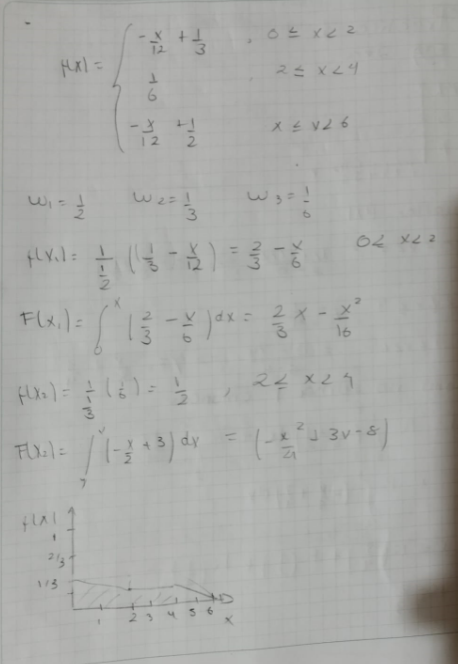 f(x) = { -x/12 + 1/3 , 0 ≤ x < 2
1/6 , 2 ≤ x < 4
-x/12 + 1/2 x ≤ x < 6
w1 = 1/2 w2 = 1/3 w3 = 1/6
f(x1) = 1/(1/2) (1/3 - x/12) = 2/3 - x/6 0 ≤ x < 2
F(x1) = ∫_0^x (2/3 - x/6) dx = 2/3 x - x²/16
f(x2) = 1/(1/3) (1/6) = 1/2 , 2 ≤ x < 4
F(x2) = ∫ (-x/2 + 3) dx = (-x²/4 + 3x - 8)
f(x)
1
2/3
1/3
1 2 3 4 5 6
x